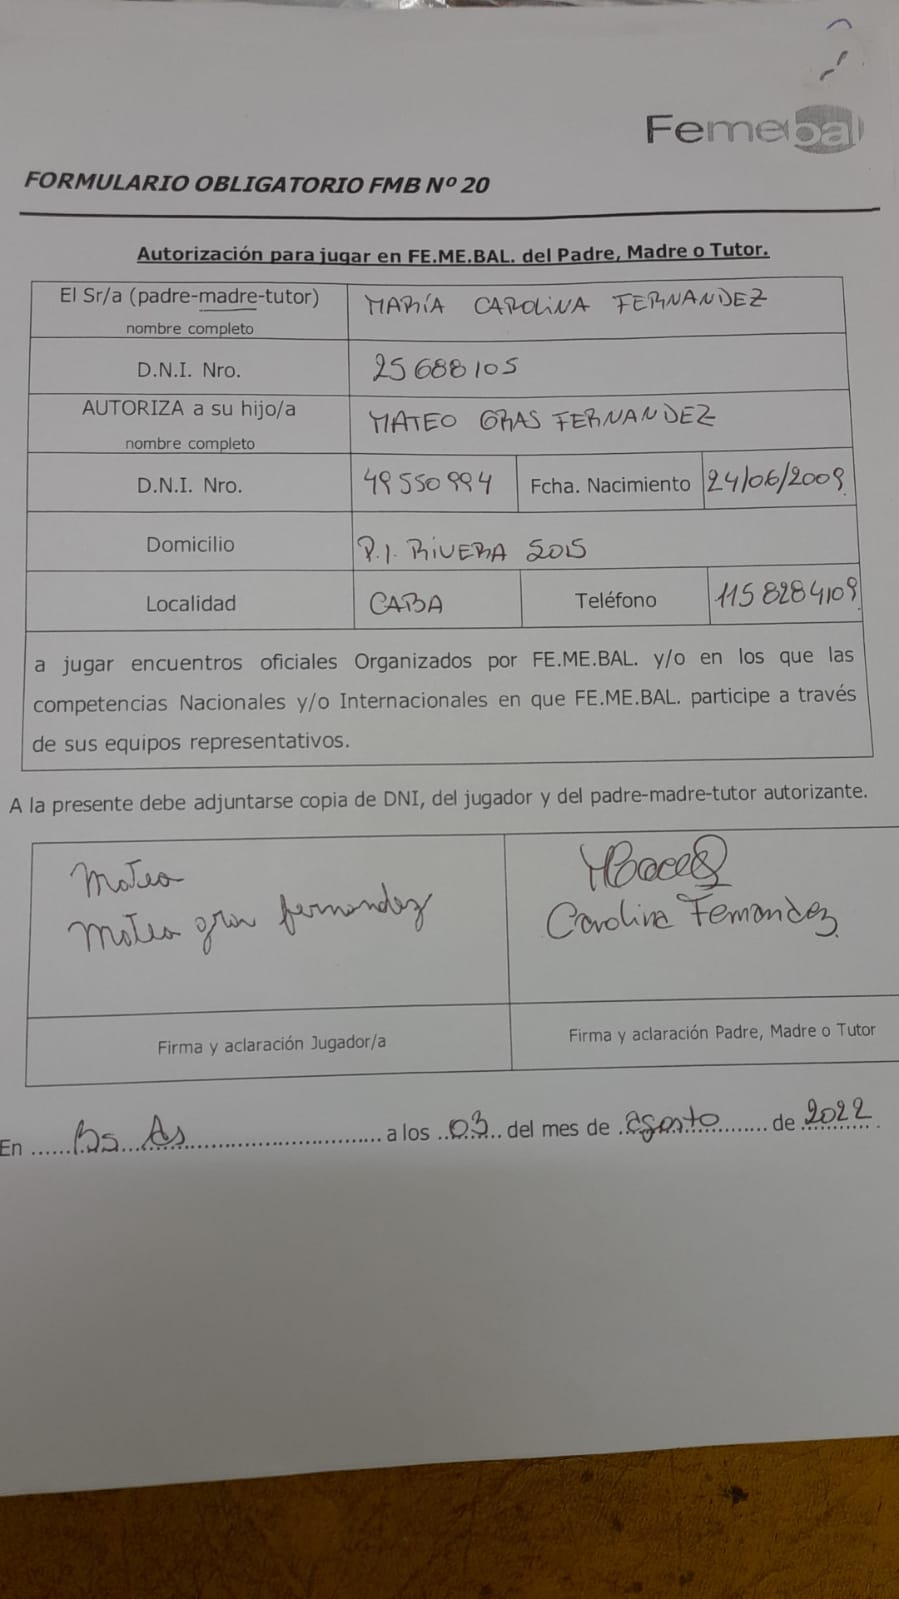 Femebal
FORMULARIO OBLIGATORIO FMB Nº 20
Autorización para jugar en FE.ME.BAL. del Padre, Madre o Tutor.
El Sr/a (padre-madre-tutor) MARÍA CAROLINA FERNANDEZ
nombre completo
D.N.I. Nro. 25688105
AUTORIZA a su hijo/a MATEO GRAS FERNANDEZ
nombre completo
D.N.I. Nro. 49550994 Fcha. Nacimiento 24/06/2009
Domicilio P.I. RIVERA 5015
Localidad CABA Teléfono 1158284109
a jugar encuentros oficiales Organizados por FE.ME.BAL. y/o en los que las
competencias Nacionales y/o Internacionales en que FE.ME.BAL. participe a través
de sus equipos representativos.
A la presente debe adjuntarse copia de DNI, del jugador y del padre-madre-tutor autorizante.
Mateo
Mateo gras fernandez
Carolina Fernandez
Firma y aclaración Jugador/a Firma y aclaración Padre, Madre o Tutor
En Bs. As a los 03 del mes de agosto de 2022